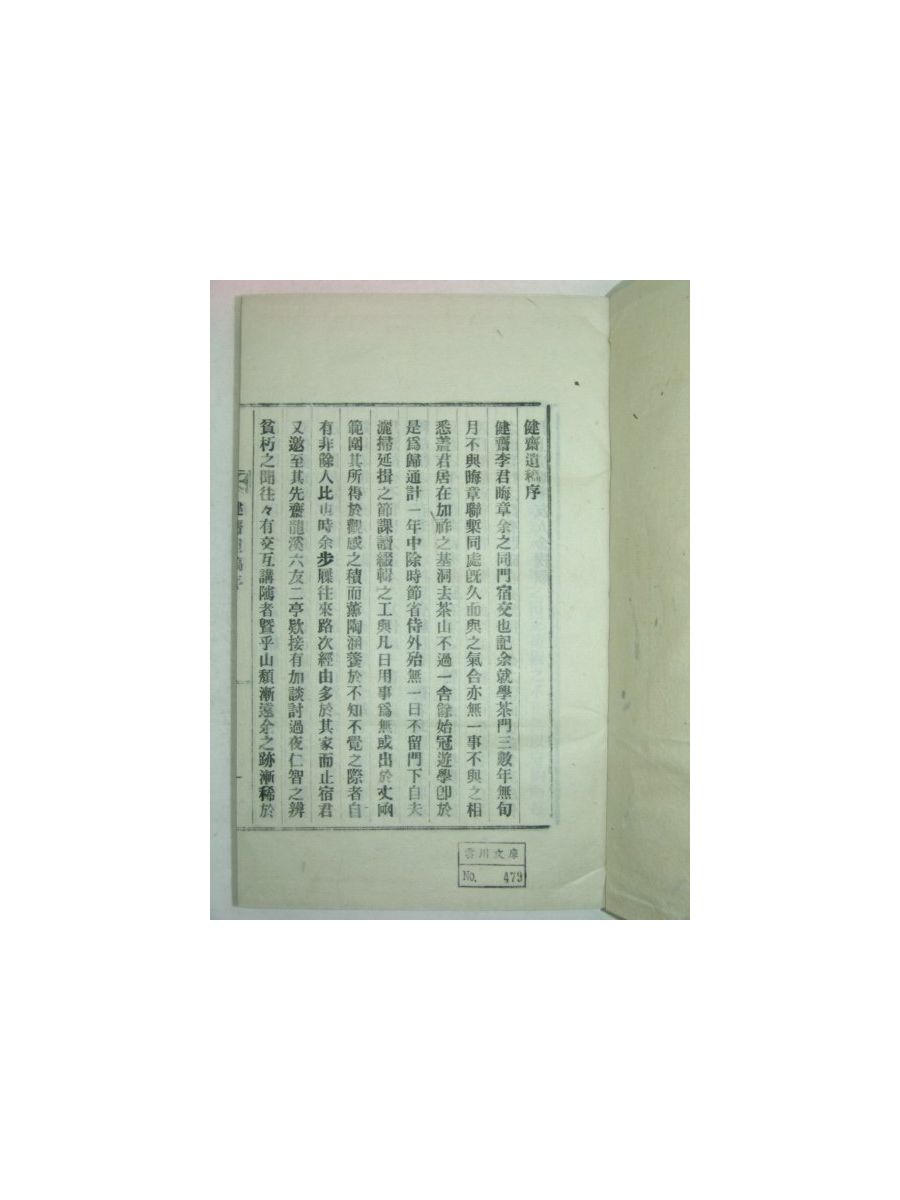 健齋遺稿序
健齋李君晦章余之同門宿交也記余就學茶門三數年無旬
月不與晦章聯槧同處旣久而與之氣合亦無一事不與之相
悉蓋君居在加祚之基洞去茶山不過一舍餘始冠遊學卽於
是爲歸通計一年中除時節省侍外殆無一日不留門下自夫
灑掃延揖之節課讀綴輯之工與凡日用事爲無或出於丈函
範圍其所得於觀感之積而薰陶涵養於不知不覺之際者自
有非餘人比也時余步屧往來路次經由多於其家而止宿君
又邀至其先齋龍溪六友二亭欵接有加談討過夜仁智之辨
貧朽之聞往々有交互講確者曁乎山頹漸遠余之跡漸稀於
健齋遺稿序
一
雲川文庫
No. 479